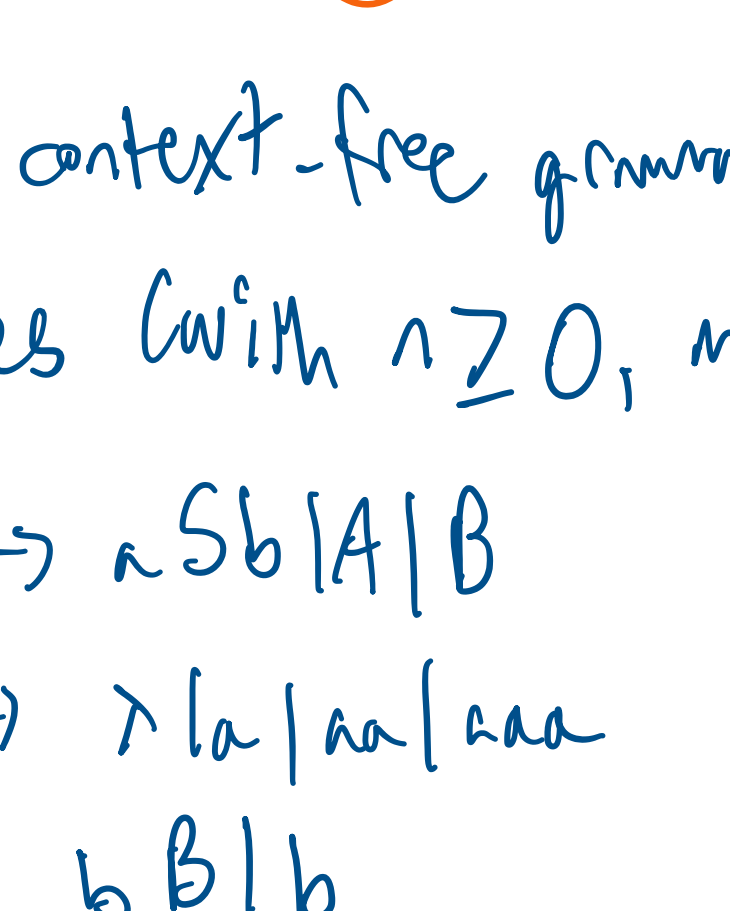 context-free
es (with n ≥ 0,
→ aSb|A|B
→ λ|a|aa|aaa
bB|b